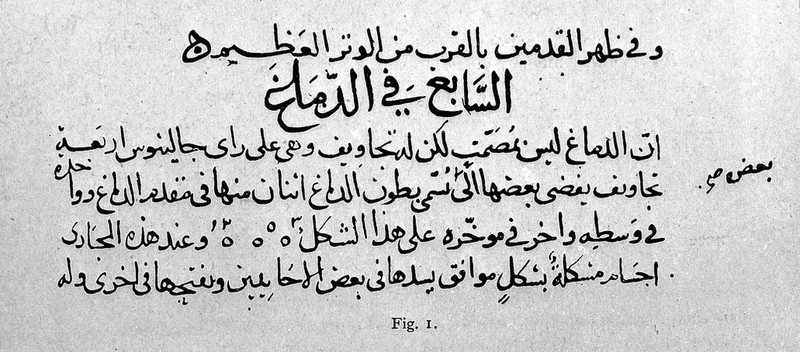 وفي ظهر القدمين بالقرب من الوتر العظيم ه
السَّابع في الدّماغ
انّ الدماغ ليس بمُصَمَّتٍ لكن له تجاويف وهى على راى جالينوس اربعة
تجاويف يفضى بعضها الى تُسَمّى بطون الدماغ اثنان منها فى مقدم الدماغ وواحده
فى وَسطِهِ واخر فى موخّره على هذا الشكل ه ه ه ه وعند هذه المجارى
اجسام مشكلةٌ بشكلٍ موافق يسدها فى بعض الاحايين ويفتحها فى اخرى وله
بعض صح
Fig. 1.